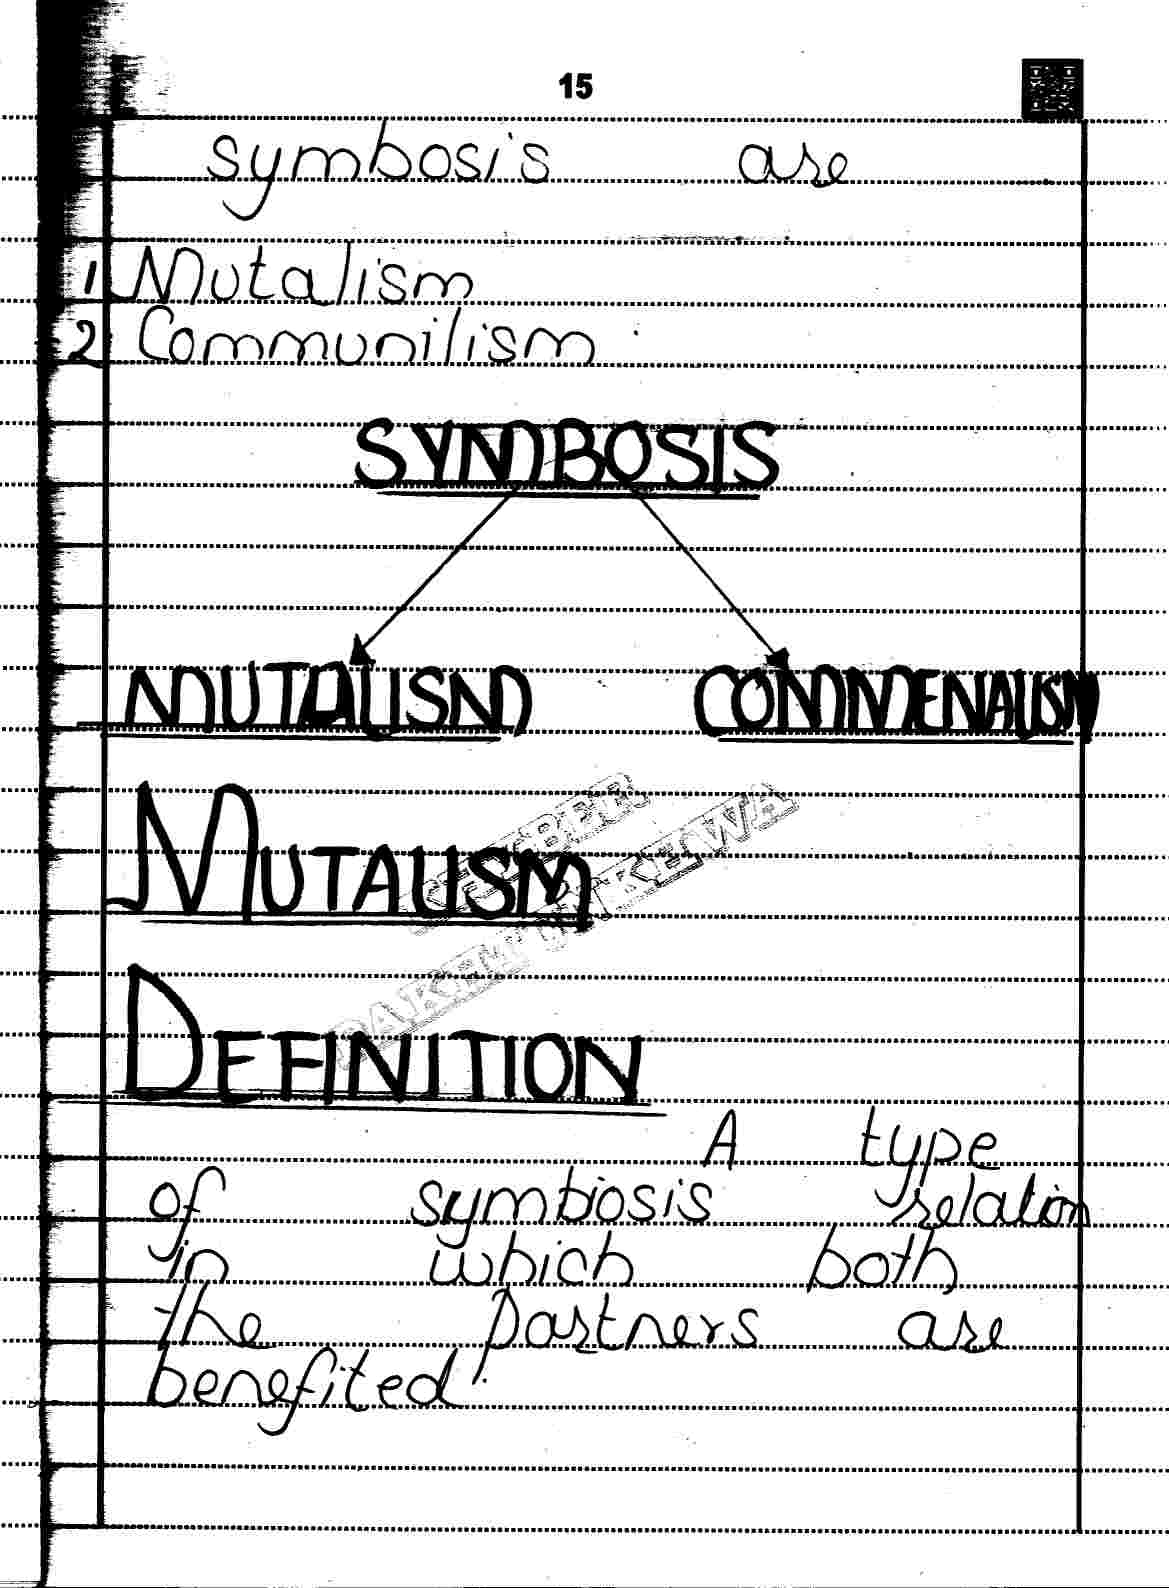 15
symbosis are
1 Mutalism
2 Communilism
SYMBOSIS
MUTALISM COMMENALISM
MUTALISM
KHYBER
PAKHTUNKHWA
DEFINITION
A type
of symbiosis relation
in which both
the partners are
benefited.